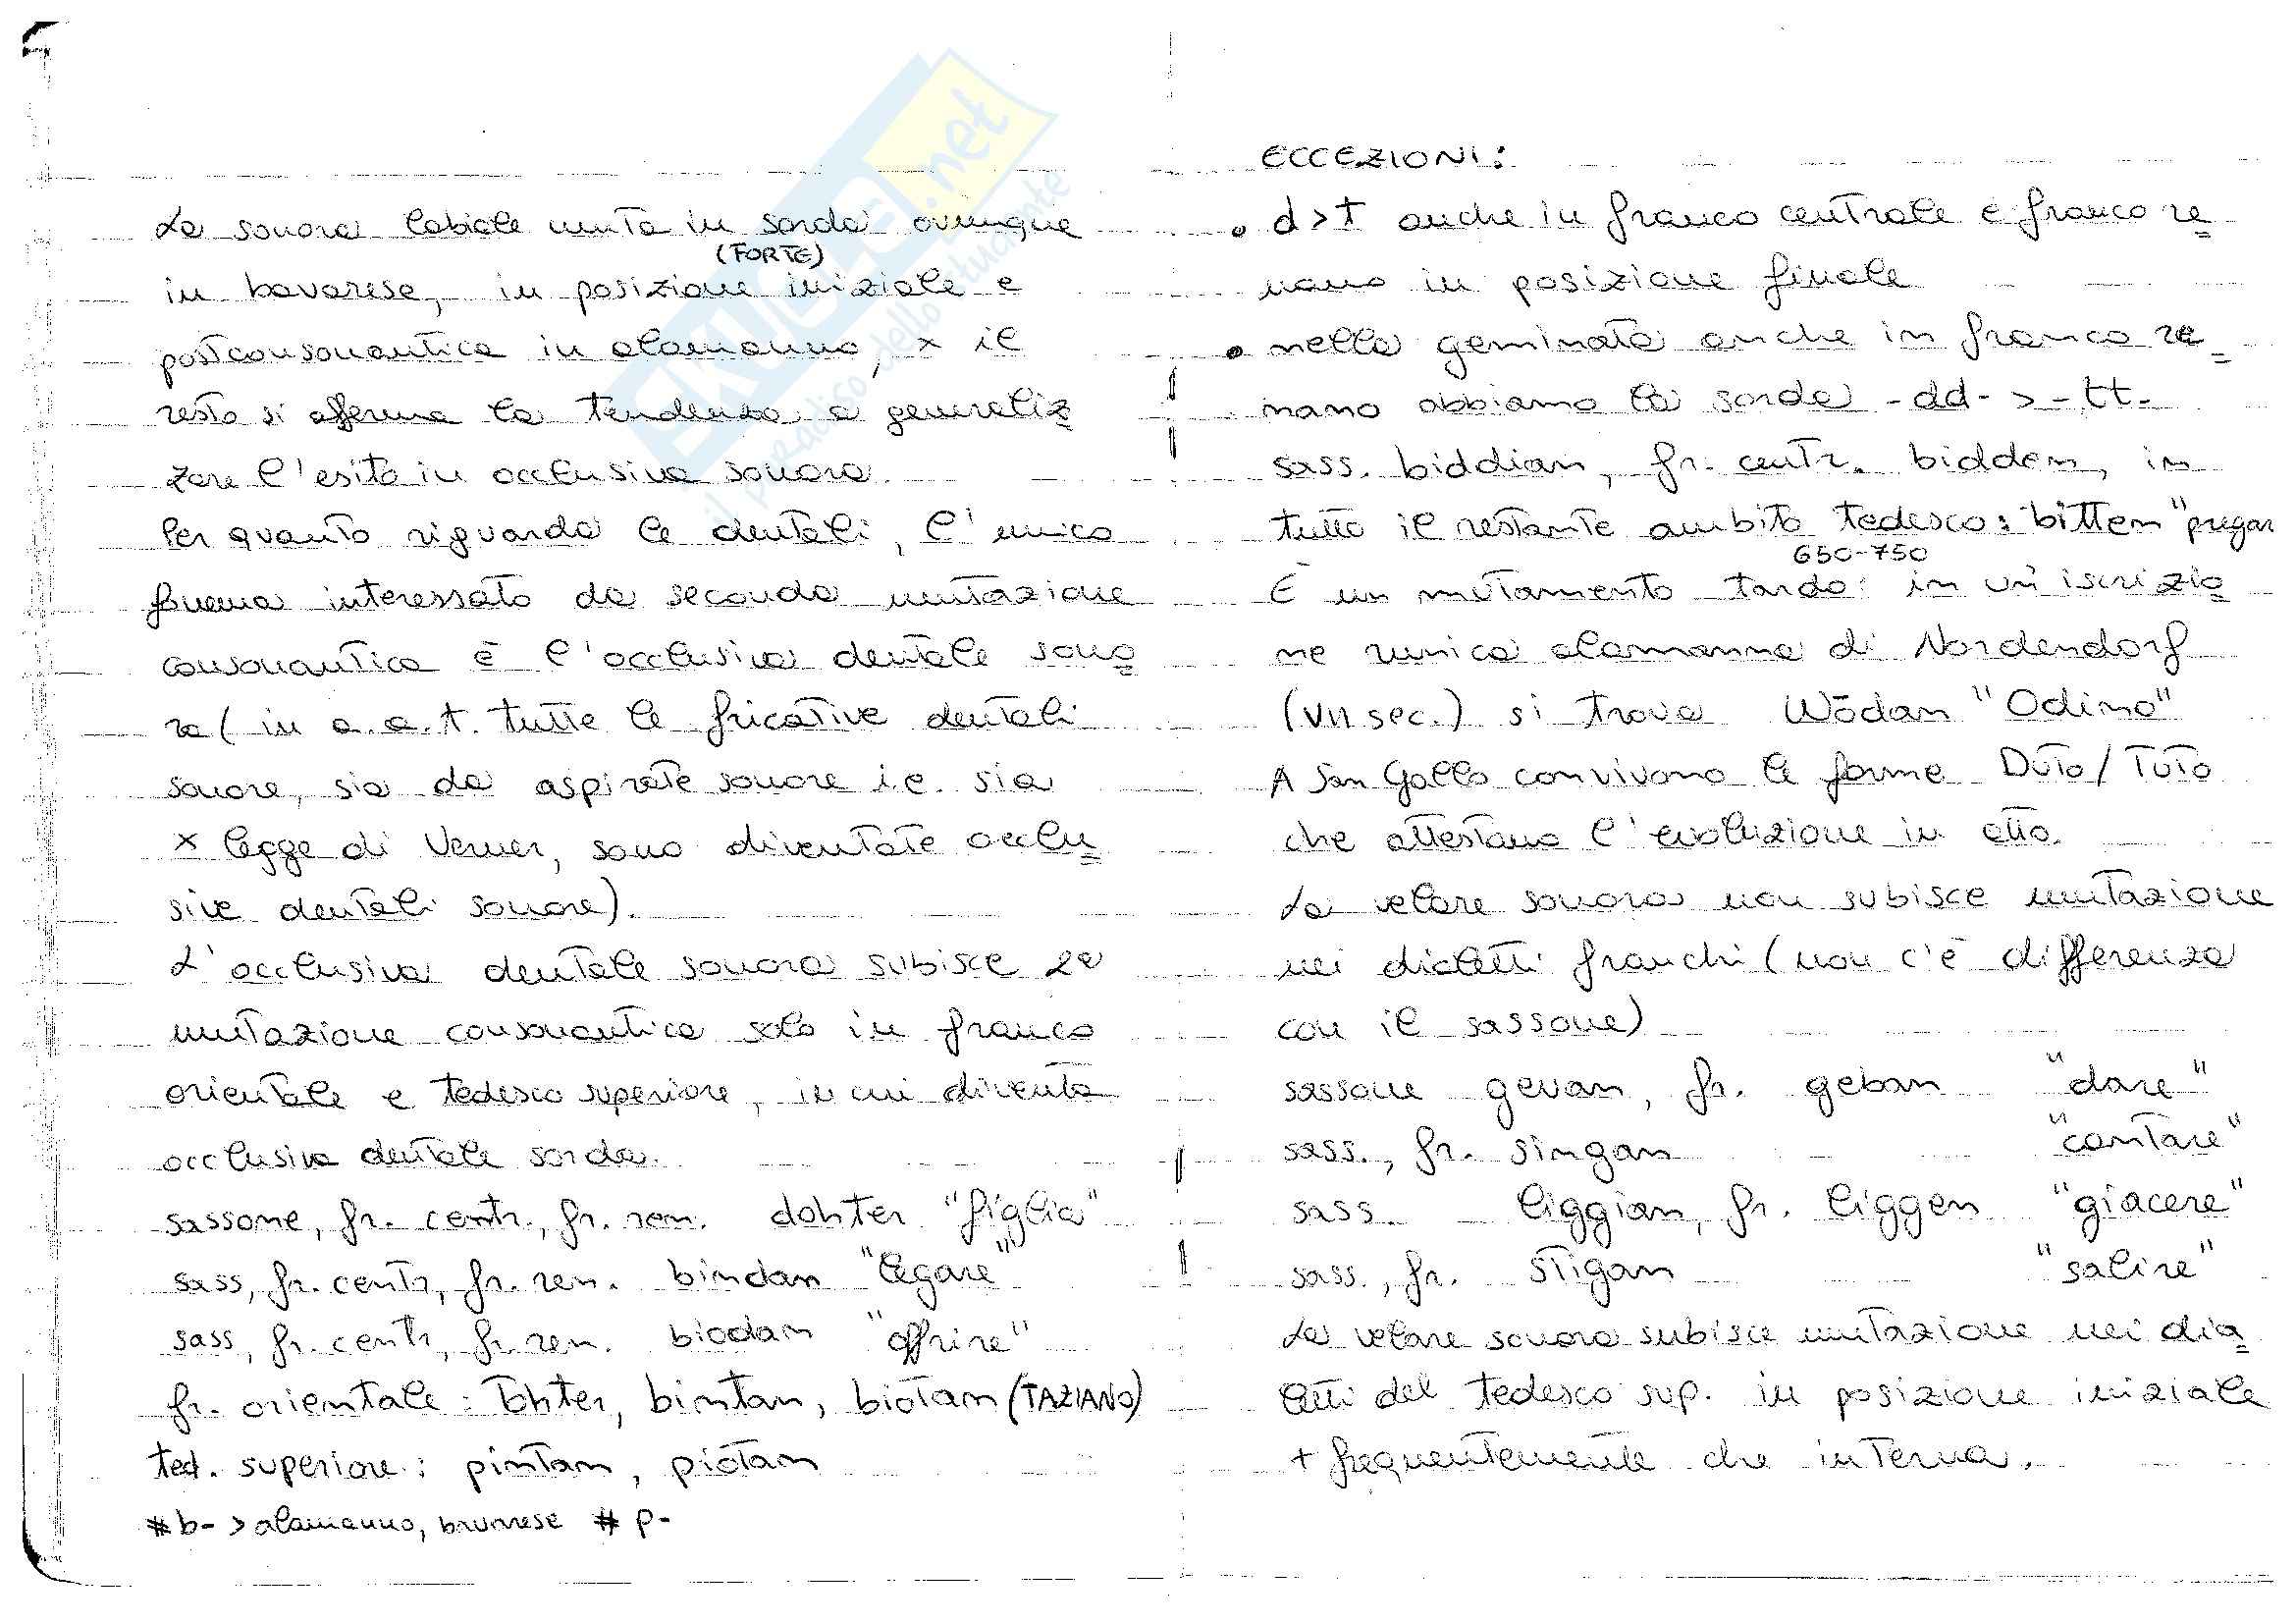 La sonora labiale muta in sorda ovunque
(FORTE)
in bavarese, in posizione iniziale e
postconsonantica in alamanno, x il
resto si afferma la tendenza a generaliz
zare l'esito in occlusiva sonora.
Per quanto riguarda le dentali, l'unico
fonema interessato da seconda mutazione
consonantica è l'occlusiva dentale sono
ra (in a.a.t. tutte le fricative dentali
sonore, sia da aspirate sonore i.e. sia
x legge di Verner, sono diventate occlu
sive dentali sonore).
L'occlusiva dentale sonora subisce la
mutazione consonantica solo in franco
orientale e tedesco superiore, in cui diventa
occlusiva dentale sorda.
sassone, fr. centr., fr. ren. dohter "figlia"
sass, fr. centr, fr. ren. bindan "legare"
sass, fr. centr, fr. ren. biodan "offrire"
fr. orientale: Tohter, bintan, biotan (TAZIANO)
ted. superiore: pintan, piotan
#b- > alamanno, bavarese #p-
ECCEZIONI:
• d>t anche in franco centrale e franco re
nano in posizione finale
• nella geminata anche in franco re
nano abbiamo la sorda -dd- > -tt-
sass. biddian, fr. centr. bidden, in
tutto il restante ambito tedesco: bitten "pregar
650-750
È un mutamento tardo: in un'iscrizio
ne runica alamanna di Nordendorf
(VII sec.) si trova Wōdan "Odino"
A San Gallo convivono le forme Dūto/Tūto
che attestano l'evoluzione in atto.
La velare sonora non subisce mutazione
nei dialetti franchi (non c'è differenza
con il sassone)
sassone gevan, fr. geban "dare"
sass., fr. singan "cantare"
sass. liggian, fr. liggen "giacere"
sass., fr. stīgan "salire"
La velare sonora subisce mutazione nei dia
letti del tedesco sup. in posizione iniziale
+ frequentemente che interna.
SKUOLA.net
il paradiso dello studente